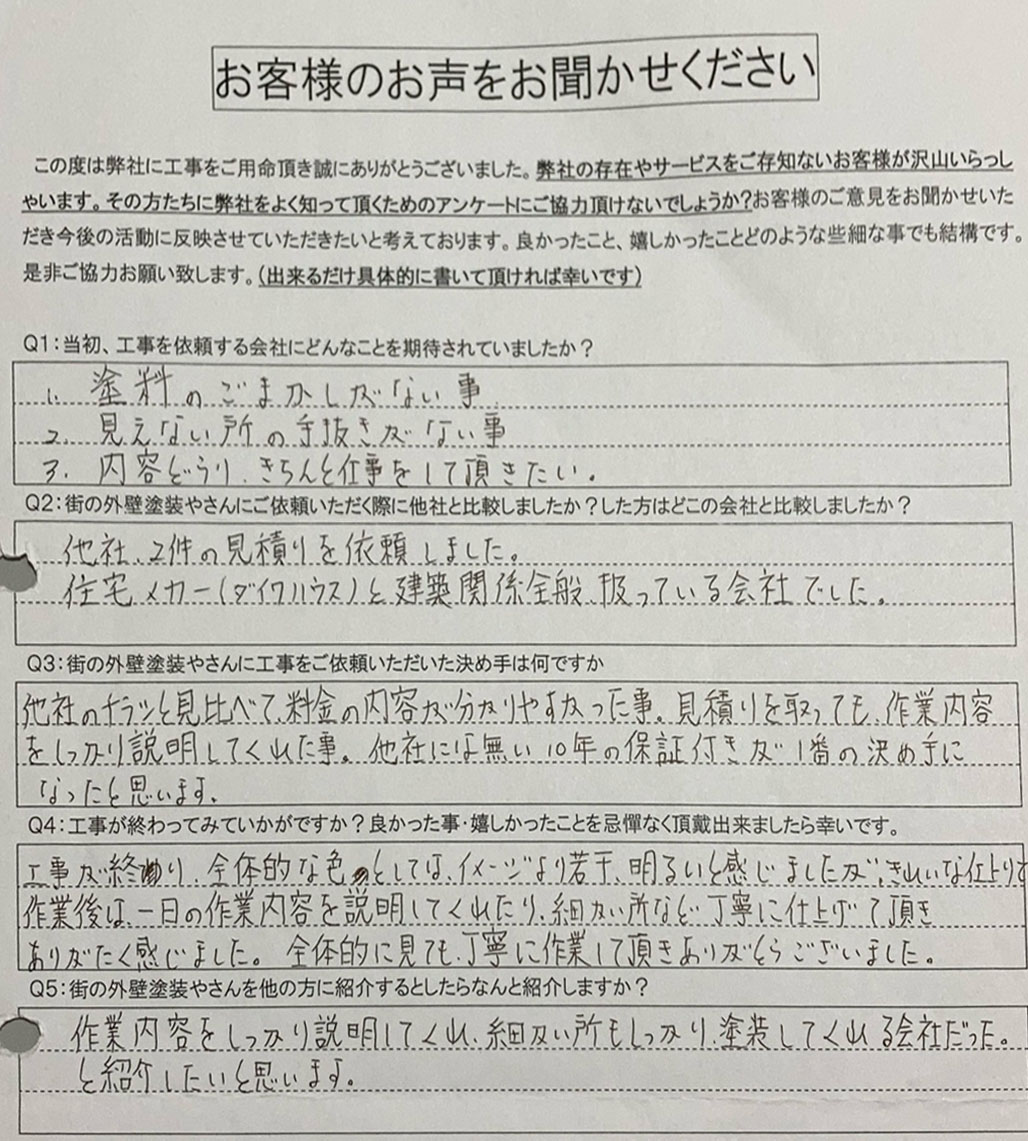 お客様のお声をお聞かせください
この度は弊社に工事をご用命頂き誠にありがとうございました。弊社の存在やサービスをご存知ないお客様が沢山いらっし
ゃいます。その方たちに弊社をよく知って頂くためのアンケートにご協力頂けないでしょうか?お客様のご意見をお聞かせいた
だき今後の活動に反映させていただきたいと考えております。良かったこと、嬉しかったことどのような些細な事でも結構です。
是非ご協力お願い致します。(出来るだけ具体的に書いて頂ければ幸いです)
Q1:当初、工事を依頼する会社にどんなことを期待されていましたか?
1. 塗料のごまかしがない事
2. 見えない所の手抜きがない事
3. 内容どうり、きちんと仕事をして頂きたい。
Q2:街の外壁塗装やさんにご依頼いただく際に他社と比較しましたか?した方はどこの会社と比較しましたか?
他社、2件の見積りを依頼しました。
住宅メカー(ダイワハウス)と建築関係全般、扱っている会社でした。
Q3:街の外壁塗装やさんに工事をご依頼いただいた決め手は何ですか
他社のチラシと見比べて、料金の内容が分かりやすかった事。見積りを取っても、作業内容
をしっかり説明してくれた事。他社には無い10年の保証付きが1番の決め手に
なったと思います。
Q4:工事が終わってみていかがですか?良かった事・嬉しかったことを忌憚なく頂戴出来ましたら幸いです。
工事が終わり、全体的な色としては、イメージより若干、明るいと感じましたが、きれいな仕上りで
作業後は、一日の作業内容を説明してくれたり、細かい所など丁寧に仕上げて頂き
ありがたく感じました。全体的に見ても、丁寧に作業して頂きありがとうございました。
Q5:街の外壁塗装やさんを他の方に紹介するとしたらなんと紹介しますか?
作業内容をしっかり説明してくれ、細かい所もしっかり、塗装してくれる会社だった。
と紹介したいと思います。